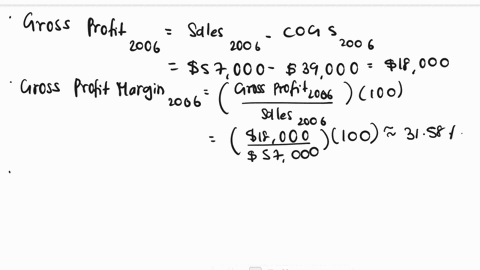 · Gross Profit 2006 = Sales 2006 - COGS 2006
= $57,000 - $39,000 = $18,000
· Gross Profit Margin 2006 = (Gross Profit 2006 / Sales 2006)(100)
= ($18,000 / $57,000)(100) ≈ 31.58%.
·